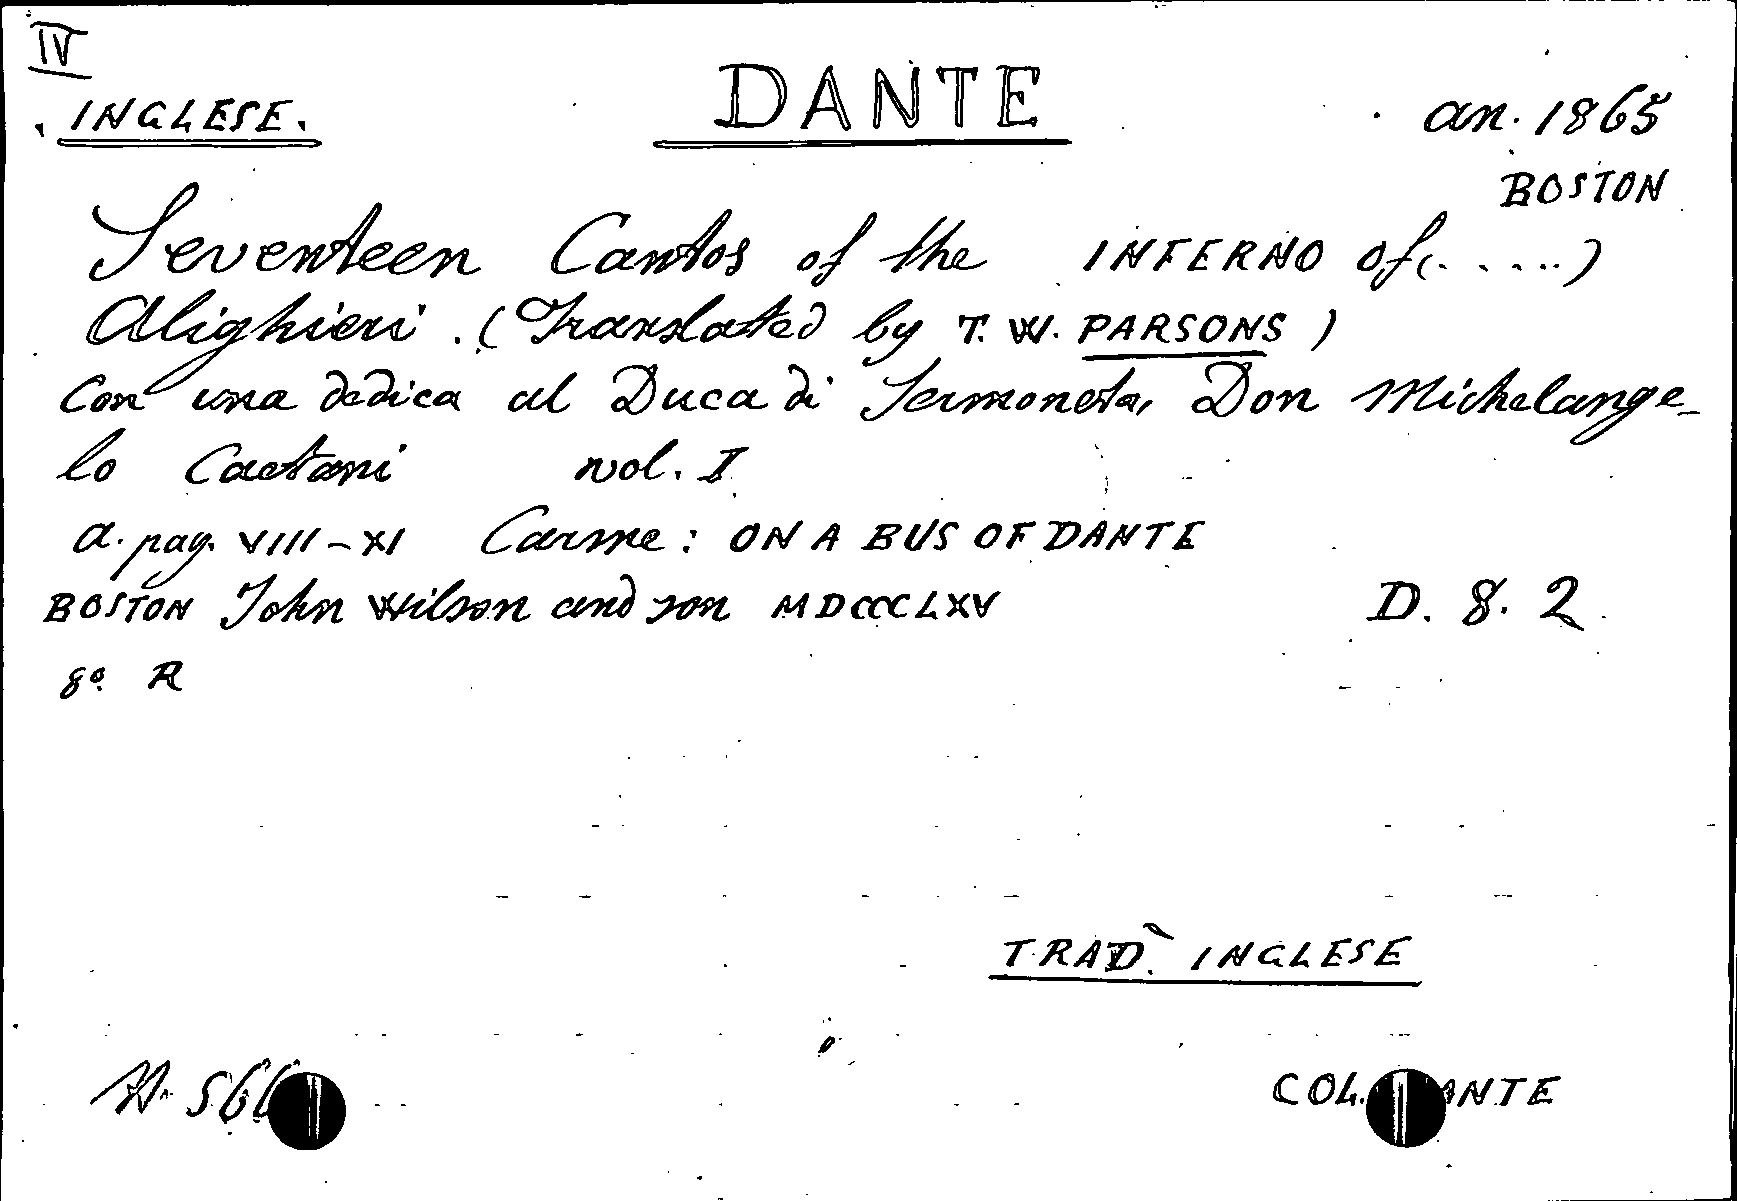 IV
INGLESE.
DANTE
an. 1865
BOSTON
Seventeen Cantos of the INFERNO of (. . . . .)
Alighieri. (Translated by T. W. PARSONS)
Con una dedica al Duca di Sermoneta, Don Michelange-
lo Caetani vol. I
a. pag. VIII - XI Carme: ON A BUS OF DANTE
BOSTON John Wilson and son MDCCCLXV
D. 8. 2
8º R
TRAD. INGLESE
COL. ANTE